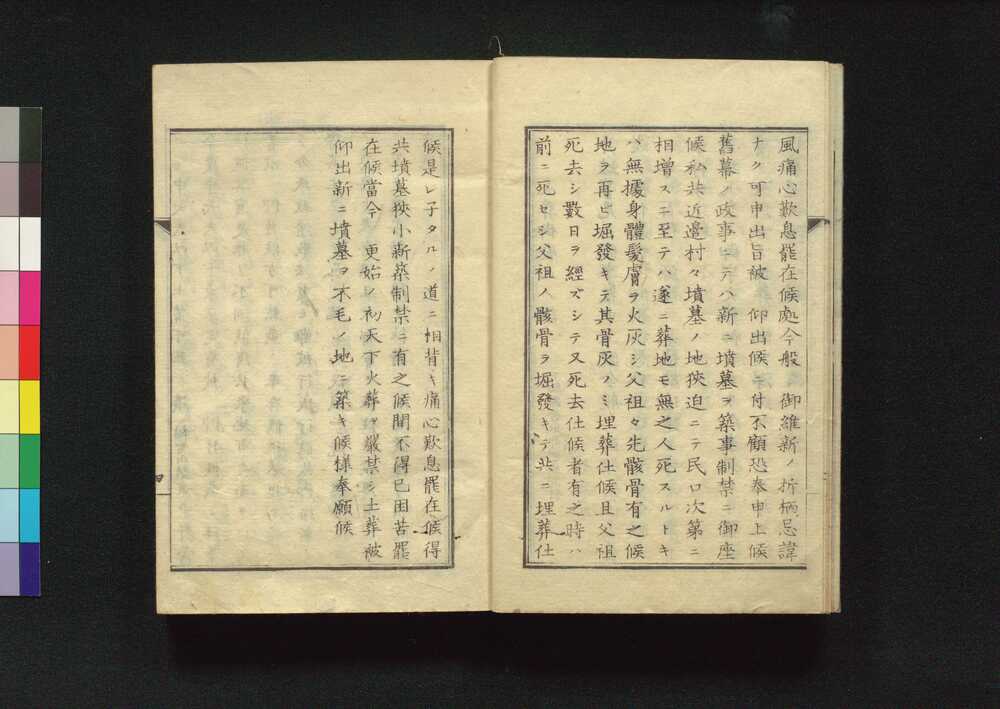 風痛心歎息罷在候処今般　御維新ノ折柄忌諱
ナク可申出旨被　仰出候ニ付不顧恐奉申上候
舊幕ノ政事ニテハ新ニ墳墓ヲ築事制禁ニ御座
候私共近邊村々墳墓ノ地狹迫ニテ民口次第ニ
相増スニ至テハ遂ニ葬地モ無之人死スルトキ
ハ無據身體髪膚ヲ火灰シ父祖々先骸骨有之候
地ヲ再ヒ堀發キテ其骨灰ノミ埋葬仕候且父祖
死去シ數日ヲ經ズシテ又死去仕候者有之時ハ
前ニ死セシ父祖ノ骸骨ヲ堀發キテ共ニ埋葬仕
候是レ子タルノ道ニ相背キ痛心歎息罷在候得
共墳墓狹小新築制禁ニ有之候間不得已困苦罷
在候當今　更始ノ初天下火葬ヲ嚴禁シ土葬被
仰出新ニ墳墓ヲ不毛ノ地ニ築キ候樣奉願候